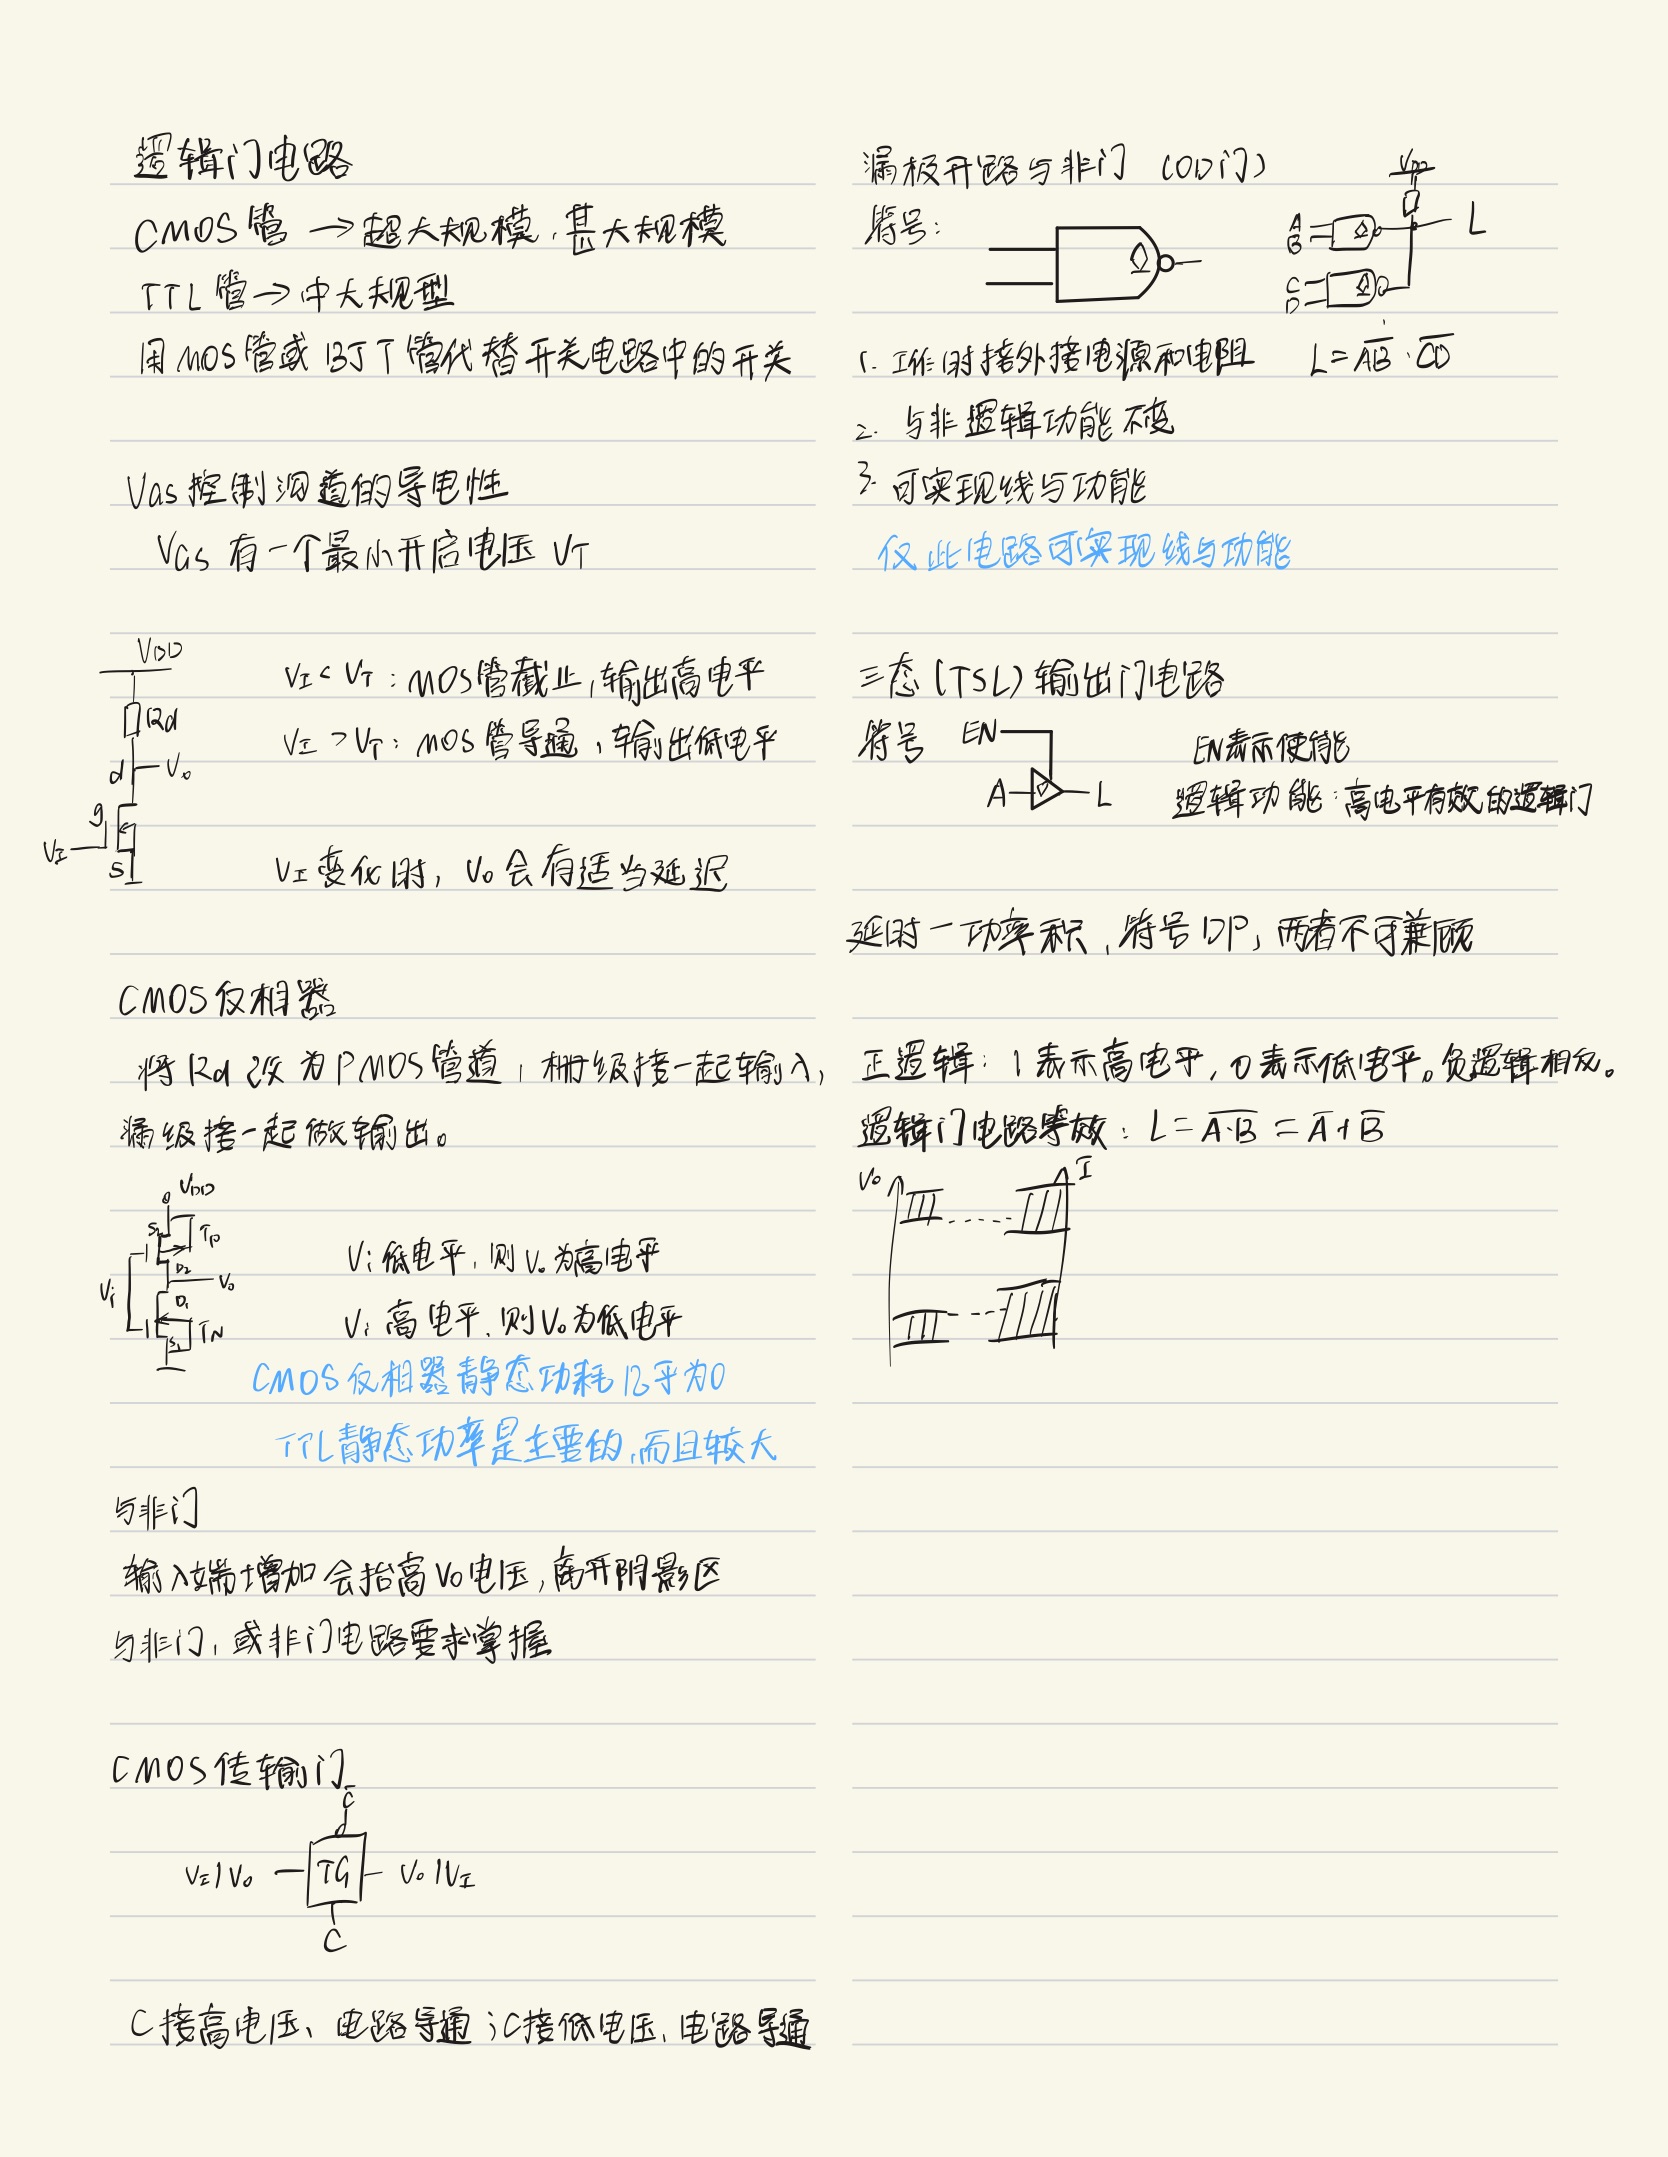 逻辑门电路
CMOS管 →超大规模,甚大规模
TTL管→中大规型
用MOS管或BJT管代替开关电路中的开关
VGS控制沟道的导电性
VGS 有一个最小开启电压 VT
VDD
Rd
d
Vo
g
VI
S
VI < VT : MOS管截止,输出高电平
VI > VT : MOS管导通,输出低电平
VI 变化时, Vo会有适当延迟
CMOS反相器
将Rd改为PMOS管道,栅级接一起输入,
漏级接一起做输出。
VDD
S2
TP
D2
Vi
Vo
D1
TN
S1
Vi 低电平,则Vo为高电平
Vi 高电平,则Vo为低电平
CMOS反相器静态功耗几乎为0
TTL静态功率是主要的,而且较大
与非门
输入端增加会抬高Vo电压,离开阴影区
与非门,或非门电路要求掌握
CMOS传输门
C̅
VI/Vo TG Vo/VI
C
C接高电压、电路导通;C接低电压,电路导通
漏极开路与非门 (OD门)
符号:
VDD
A
B
L
C
D
1. 工作时接外接电源和电阻 L=A̅B̅·C̅D̅
2. 与非逻辑功能不变
3. 可实现线与功能
仅此电路可实现线与功能
三态(TSL)输出门电路
符号 EN
A L
EN表示使能
逻辑功能:高电平有效的逻辑门
延时一功率积,符号DP,两者不可兼顾
正逻辑: 1表示高电平,0表示低电平。负逻辑相反。
逻辑门电路等效: L=A̅·̅B̅ = A̅+B̅
Vo
I